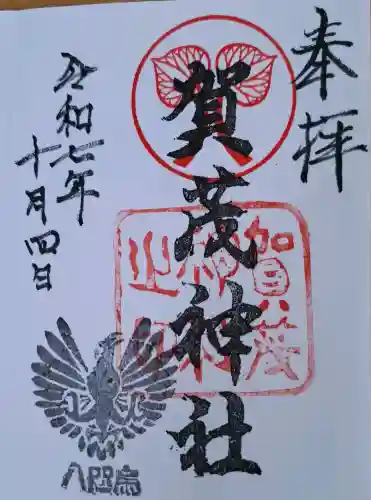 奉拝
賀茂神社
加茂
神社
之印
令和七年
十月四日
八咫烏